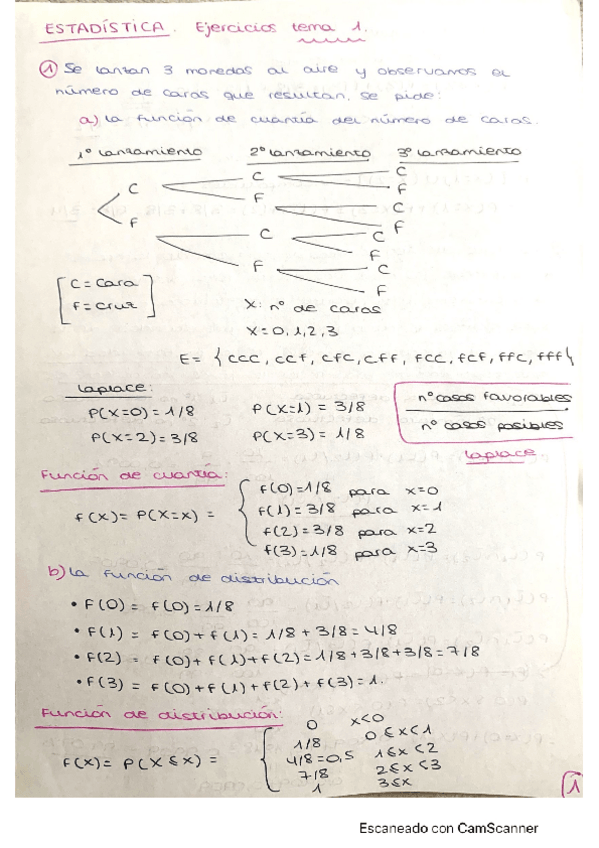 ESTADÍSTICA. Ejercicios tema 1.
① Se lanzan 3 monedas al aire y observamos el
número de caras que resultan, se pide:
a) La función de cuantía del número de caras.
1º lanzamiento 2º lanzamiento 3º lanzamiento
C C C
F
F C
F
F C C
F
F C
F
[C = Cara
F = Cruz]
X: nº de caras
X = 0, 1, 2, 3
E = {CCC, CCf, CfC, Cff, fCC, fCf, ffC, fff}
Laplace:
P(X=0) = 1/8 P(X=1) = 3/8
P(X=2) = 3/8 P(X=3) = 1/8
nº casos favorables
nº casos posibles
Laplace
Función de cuantía:
f(x) = P(X=x) = { f(0) = 1/8 para x=0
f(1) = 3/8 para x=1
f(2) = 3/8 para x=2
f(3) = 1/8 para x=3
b) La función de distribución
• F(0) = f(0) = 1/8
• F(1) = f(0) + f(1) = 1/8 + 3/8 = 4/8
• F(2) = f(0) + f(1) + f(2) = 1/8 + 3/8 + 3/8 = 7/8
• F(3) = f(0) + f(1) + f(2) + f(3) = 1.
Función de distribución:
F(x) = P(X ≤ x) = { 0 x<0
1/8 0 ≤ x < 1
4/8 = 0,5 1 ≤ x < 2
7/8 2 ≤ x < 3
1 3 ≤ x
1
Escaneado con CamScanner